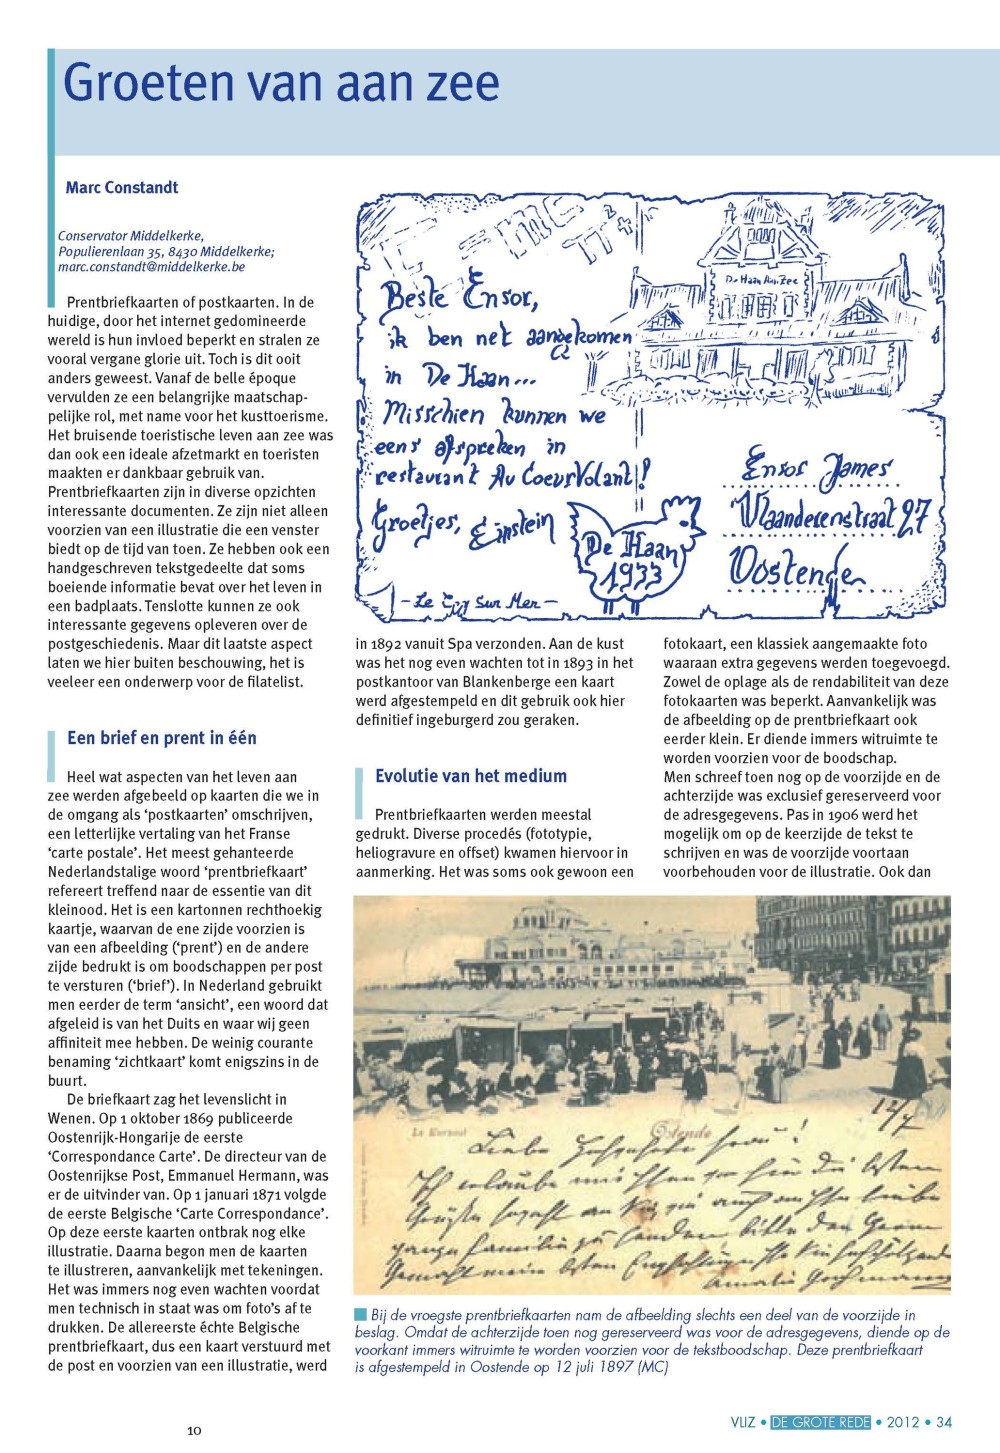 Groeten van aan zee
Marc Constandt
Conservator Middelkerke,
Populierenlaan 35, 8430 Middelkerke;
marc.constandt@middelkerke.be
Prentbriefkaarten of postkaarten. In de
huidige, door het internet gedomineerde
wereld is hun invloed beperkt en stralen ze
vooral vergane glorie uit. Toch is dit ooit
anders geweest. Vanaf de belle époque
vervulden ze een belangrijke maatschap-
pelijke rol, met name voor het kusttoerisme.
Het bruisende toeristische leven aan zee was
dan ook een ideale afzetmarkt en toeristen
maakten er dankbaar gebruik van.
Prentbriefkaarten zijn in diverse opzichten
interessante documenten. Ze zijn niet alleen
voorzien van een illustratie die een venster
biedt op de tijd van toen. Ze hebben ook een
handgeschreven tekstgedeelte dat soms
boeiende informatie bevat over het leven in
een badplaats. Tenslotte kunnen ze ook
interessante gegevens opleveren over de
postgeschiedenis. Maar dit laatste aspect
laten we hier buiten beschouwing, het is
veeleer een onderwerp voor de filatelist.
Een brief en prent in één
Heel wat aspecten van het leven aan
zee werden afgebeeld op kaarten die we in
de omgang als ‘postkaarten’ omschrijven,
een letterlijke vertaling van het Franse
‘carte postale’. Het meest gehanteerde
Nederlandstalige woord ‘prentbriefkaart’
refereert treffend naar de essentie van dit
kleinood. Het is een kartonnen rechthoekig
kaartje, waarvan de ene zijde voorzien is
van een afbeelding (‘prent’) en de andere
zijde bedrukt is om boodschappen per post
te versturen (‘brief’). In Nederland gebruikt
men eerder de term ‘ansicht’, een woord dat
afgeleid is van het Duits en waar wij geen
affiniteit mee hebben. De weinig courante
benaming ‘zichtkaart’ komt enigszins in de
buurt.
De briefkaart zag het levenslicht in
Wenen. Op 1 oktober 1869 publiceerde
Oostenrijk-Hongarije de eerste
‘Correspondance Carte’. De directeur van de
Oostenrijkse Post, Emmanuel Hermann, was
er de uitvinder van. Op 1 januari 1871 volgde
de eerste Belgische ‘Carte Correspondance’.
Op deze eerste kaarten ontbrak nog elke
illustratie. Daarna begon men de kaarten
te illustreren, aanvankelijk met tekeningen.
Het was immers nog even wachten voordat
men technisch in staat was om foto’s af te
drukken. De allereerste échte Belgische
prentbriefkaart, dus een kaart verstuurd met
de post en voorzien van een illustratie, werd
E = mc²
De Haan Aan Zee
Beste Ensor,
ik ben net aangekomen
in De Haan...
Misschien kunnen we
eens afspreken in
restaurant Au Coeur Volant!
Groetjes, Einstein
De Haan
1933
- Le Coq Sur Mer -
Ensor James
Vlaanderenstraat 27
Oostende
in 1892 vanuit Spa verzonden. Aan de kust
was het nog even wachten tot in 1893 in het
postkantoor van Blankenberge een kaart
werd afgestempeld en dit gebruik ook hier
definitief ingeburgerd zou geraken.
Evolutie van het medium
Prentbriefkaarten werden meestal
gedrukt. Diverse procedés (fototypie,
heliogravure en offset) kwamen hiervoor in
aanmerking. Het was soms ook gewoon een
fotokaart, een klassiek aangemaakte foto
waaraan extra gegevens werden toegevoegd.
Zowel de oplage als de rendabiliteit van deze
fotokaarten was beperkt. Aanvankelijk was
de afbeelding op de prentbriefkaart ook
eerder klein. Er diende immers witruimte te
worden voorzien voor de boodschap.
Men schreef toen nog op de voorzijde en de
achterzijde was exclusief gereserveerd voor
de adresgegevens. Pas in 1906 werd het
mogelijk om op de keerzijde de tekst te
schrijven en was de voorzijde voortaan
voorbehouden voor de illustratie. Ook dan
12/7
Le Kursaal
Ostende
Liebe
Bij de vroegste prentbriefkaarten nam de afbeelding slechts een deel van de voorzijde in
beslag. Omdat de achterzijde toen nog gereserveerd was voor de adresgegevens, diende op de
voorkant immers witruimte te worden voorzien voor de tekstboodschap. Deze prentbriefkaart
is afgestempeld in Oostende op 12 juli 1897 (MC)
10
VLIZ • DE GROTE REDE • 2012 • 34